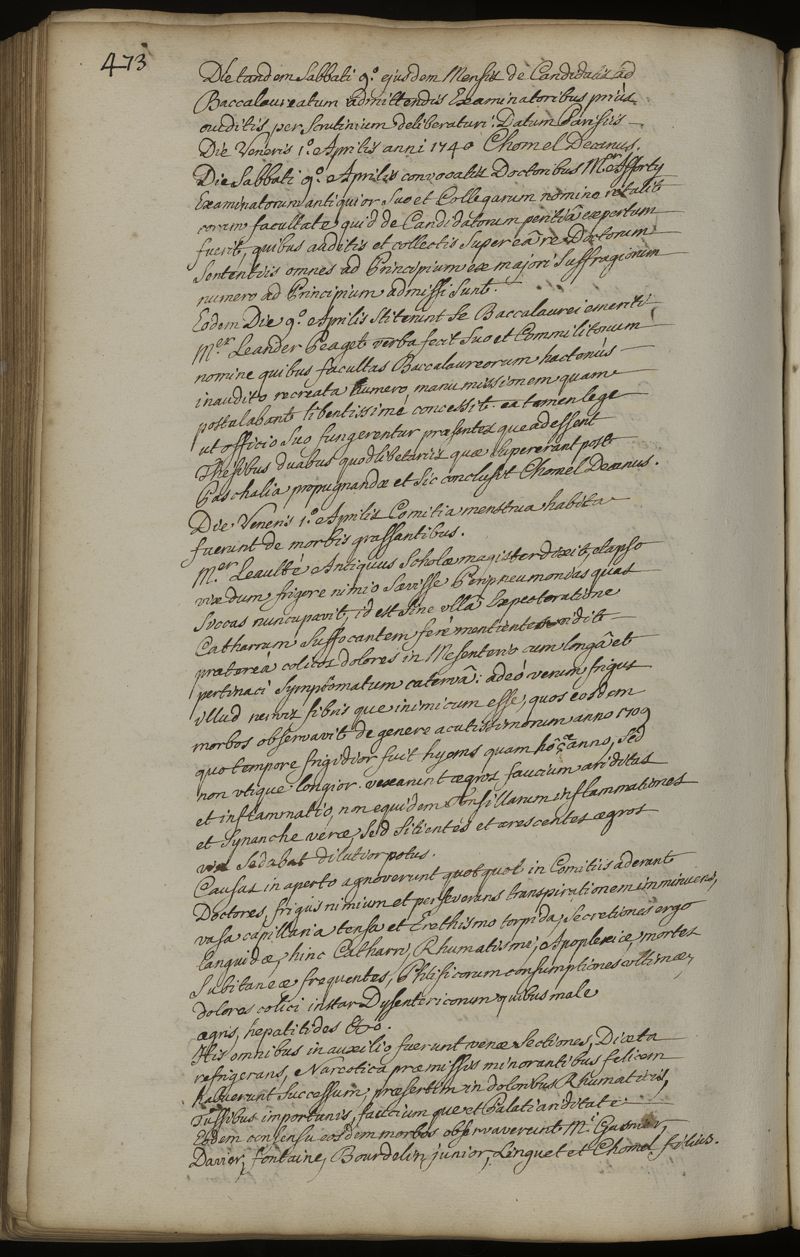 473
Die tandem Sabbati 9.° ejusdem Mensis de Candidatis ad
Baccalaureatum admittendis Examinatoribus prius
auditis, per Scrutinium deliberaturi. Datum Parisiis
Die Veneris 1.° Aprilis anni 1740 Chomel Decanus.
Die Sabbati 9.° Aprilis convocatis Doctoribus M.er Afforty
Examinatorum antiquior suo et Collegarum nomine retulit
coram facultate quid de Candidatorum peritiâ expertum
fuerit, quibus auditis et collectis super eâ re Doctorum
Sententiis omnes ad Principium ex majori Suffragiorum
numero ad Principium admissi Sunt.
Eodem Die 9.° Aprilis stiterunt se Baccalaurei emeriti
M.er Leander Peaget verba fecit suo et Commilitonum
nomine quibus facultas Baccalaureorum hactenùs
inaudito recreata numero, manumissionem quam
postulabant libentissimè concessit ea tamen lege
ut officio suo fungerentur præsentes que adessent
Thesibus duabus quodlibetariis quæ supererant post
Paschalia propugnandæ et sic conclusit Chomel Decanus.
Die Veneris 1.° Aprilis Comitia menstrua habita
fuerunt de morbis grassantibus.
M.er Leaulté Antiquus Scholæ magister dixit, elapso
vix dum frigore nimio Sævisse Peripneumonias quas
Siccas nuncupavit, id est sine ullâ Expectoratione
Catharrum Suffocantem ferè mentientes
prætereà colicos dolores in Mesenterio cum longâ et
pertinaci Symptomatum catervâ: adeò verum frigus
illud nervis fibris que inimicum esse, quos eosdem
morbos observavit de genere acutissimorum anno 1709
quo tempore frigidior fuit hyems quam hôcce anno, sed
non utique longior. vexarunt ægros faucium ariditas
et inflammatio, non equidem Tonsillarum inflammationes
et Synanche veræ, sed Sitientes et arescentes ægros
vix Sedabat dilutior potus.
Causas in aperto agnoverunt quotquot in Comitiis aderant
Doctores, frigus nimium et perseverans transpirationem imminuens,
vasa capillaria tensa et Erethismo torpida, Secretiones ergo
languidæ, hinc Catharri, Rhumatismi, Apoplexiæ, mortes
Subitaneæ frequentes, Phtisicorum consumptiones ultimæ,
dolores colici instar Dysentericorum quibus male
ægris, hepatitides &c.
His omnibus in auxilio fuerunt venæ Sectiones, Diæta
refrigerans, Narcotica præmissis minorantibus felicem
habuerunt Successum, præsertim in doloribus Rhumaticis,
Tussibus importunis, faucium que et Palati ariditate.
Eodem consensu eosdem morbos observaverunt M.i Gasnier,
Davier, fontaine, Bourdelin junior, Linguet et Chomel filius.